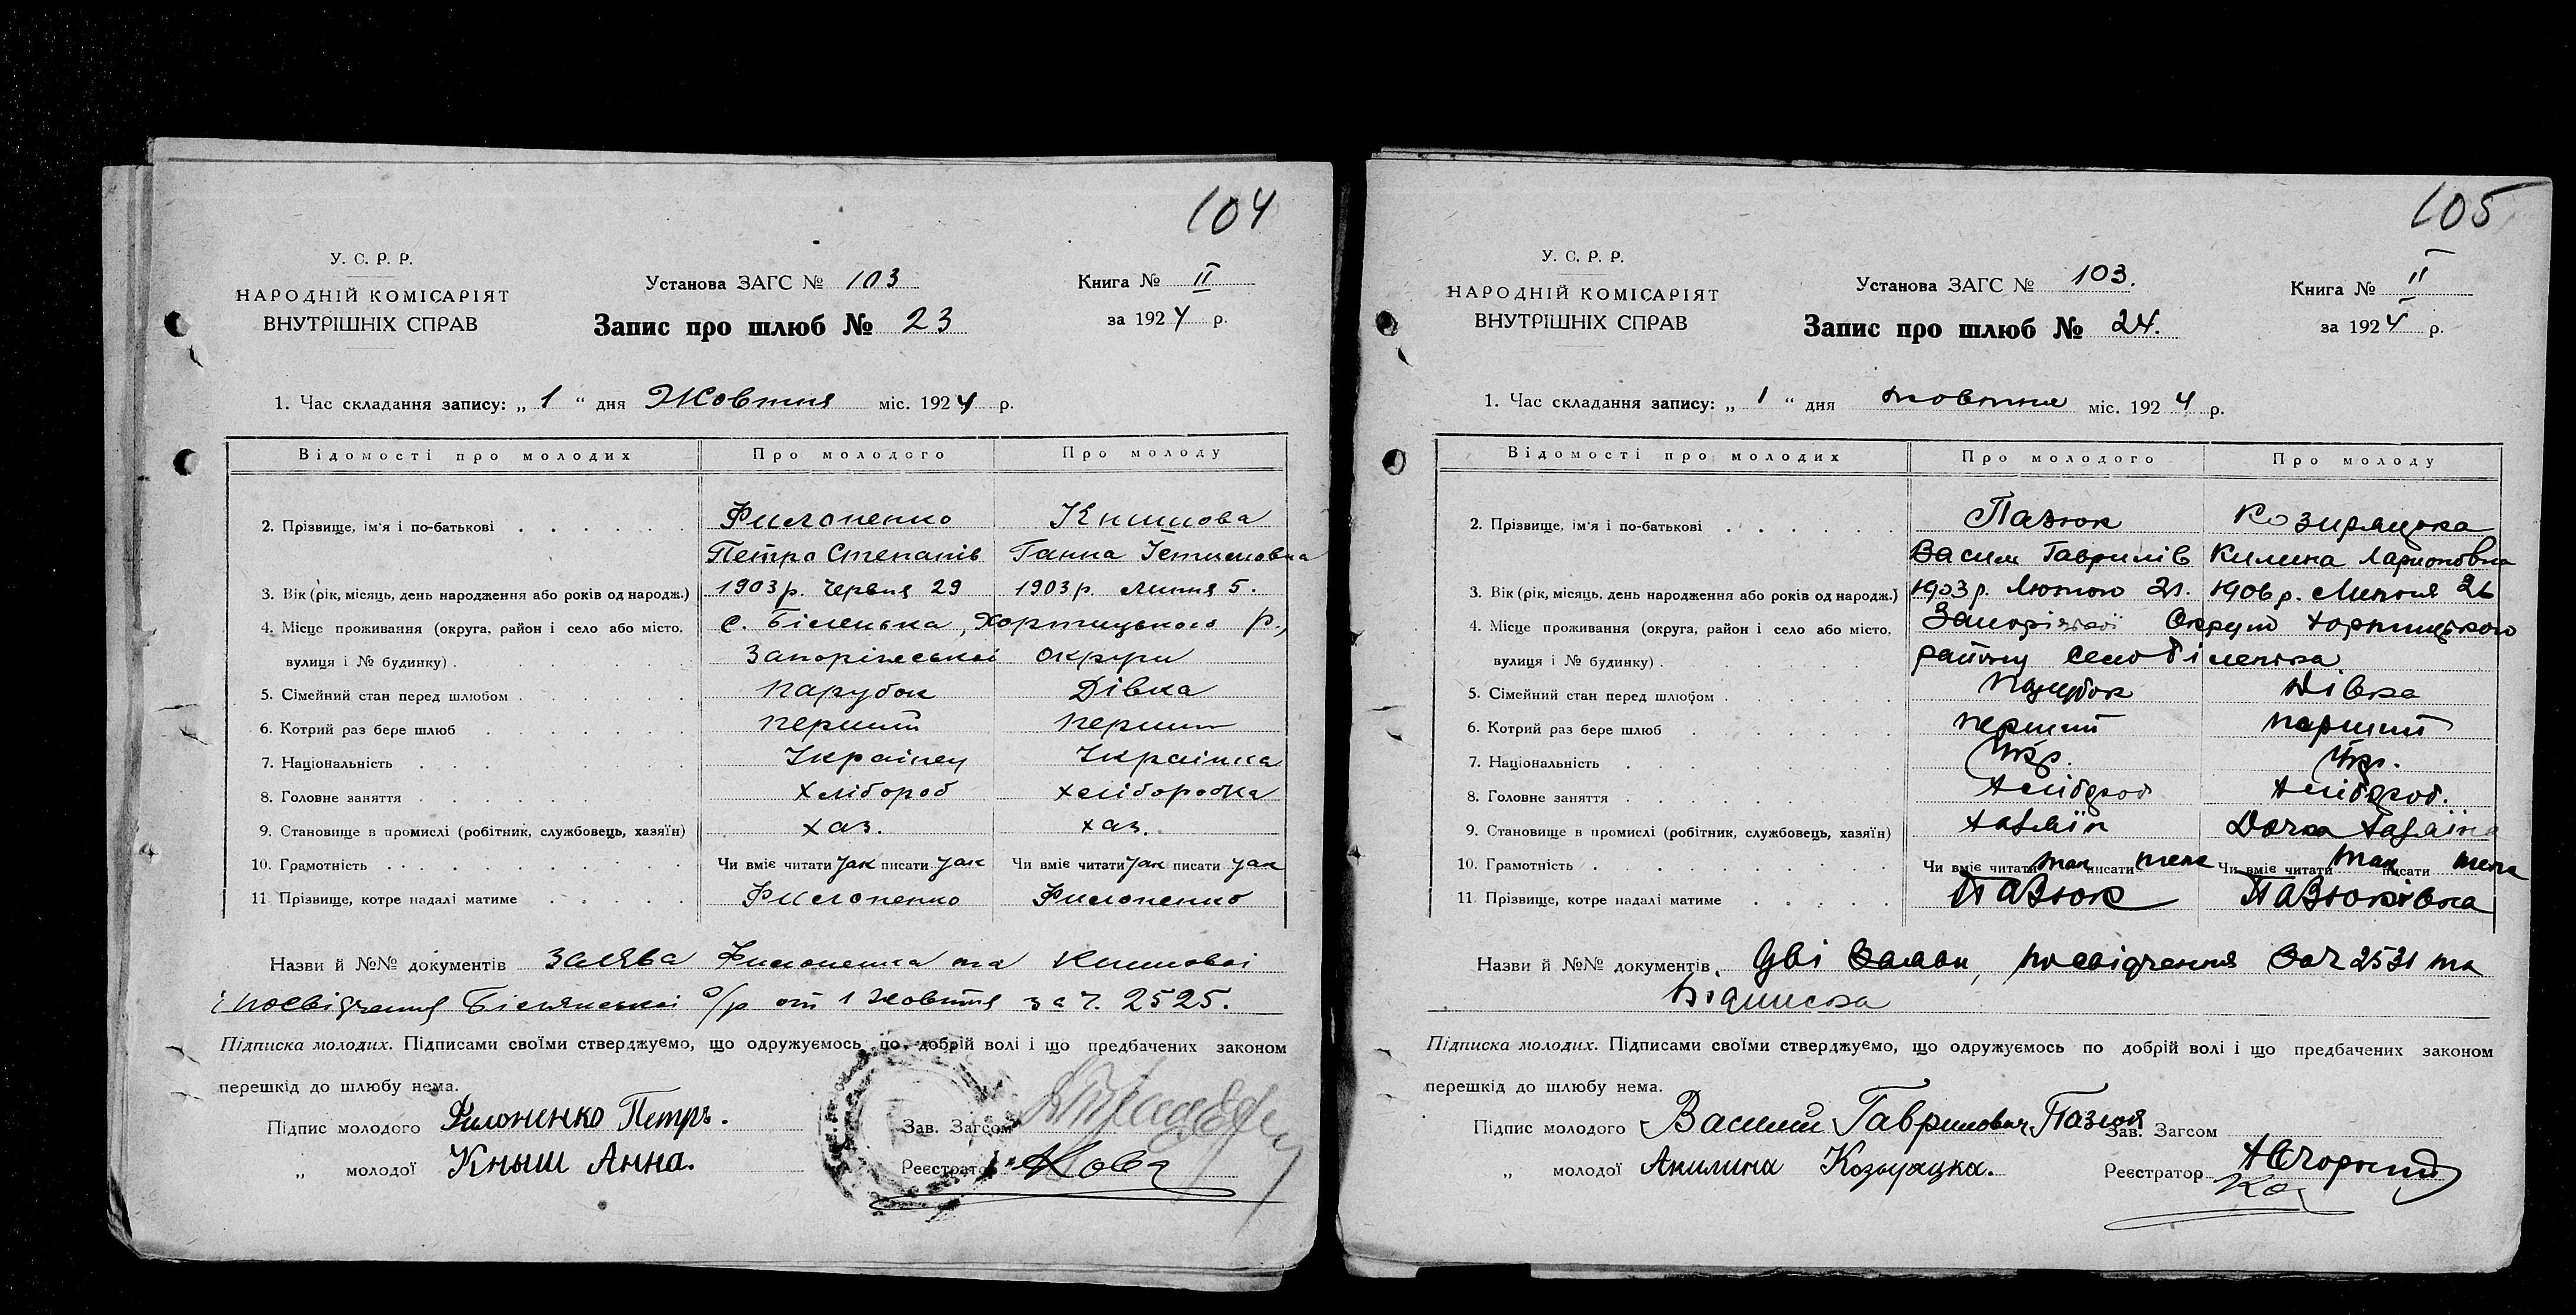 104
У. С. Р. Р.
НАРОДНІЙ КОМІСАРІЯТ
ВНУТРІШНІХ СПРАВ
Установа ЗАГС № 103
Запис про шлюб № 23
Книга № II
за 1924 р.
1. Час складання запису: „ 1 “ дня Жовтня міс. 1924 р.
Відомості про молодих Про молодого Про молоду
2. Прізвище, ім'я і по-батькові Филоненко Книшова
Петро Степанів Ганна
3. Вік (рік, місяць, день народження або років од народж.) 1903 р. Червня 29 1903 р. Липня 5.
4. Місце проживання (округа, район і село або місто, с. Біленька, Хортицького р.,
вулиця і № будинку) Запоріжської округи
5. Сімейний стан перед шлюбом парубок Дівка
6. Котрий раз бере шлюб перший перший
7. Національність Українец Українка
8. Головне заняття хлібороб хліборобка
9. Становище в промислі (робітник, службовець, хазяїн) хаз. хаз.
10. Грамотність Чи вміє читати так писати так Чи вміє читати так писати так
11. Прізвище, котре надалі матиме Филоненко Филоненко
Назви й №№ документів заява Филоненка та Книшової
і посвідчення Білянської с/р от 1 Жовтня за ч. 2525.
Підписка молодих. Підписами своїми стверджуємо, що одружуємось по добрій волі і що предбачених законом
перешкід до шлюбу нема.
Підпис молодого Филоненко Петръ.
Зав. Загсом
„ молодої Кныш Анна.
Реєстратор
105
У. С. Р. Р.
НАРОДНІЙ КОМІСАРІЯТ
ВНУТРІШНІХ СПРАВ
Установа ЗАГС № 103.
Запис про шлюб № 24.
Книга № II
за 1924 р.
1. Час складання запису: „ 1 “ дня жовтня міс. 1924 р.
Відомості про молодих Про молодого Про молоду
2. Прізвище, ім'я і по-батькові Пазюк Козиряцька
Васил Гаврилів Килина Ларионовна
3. Вік (рік, місяць, день народження або років од народж.) 1903 р. Лютого 21. 1906 р. Липня 26
4. Місце проживання (округа, район і село або місто, Запорізької Округи Хортицького
вулиця і № будинку) району село Біленька
5. Сімейний стан перед шлюбом Парубок Дівка
6. Котрий раз бере шлюб перший перший
7. Національність Укр. Укр.
8. Головне заняття Хлібороб Хлібороб.
9. Становище в промислі (робітник, службовець, хазяїн) Хазяїн Дочка Хазяїна
10. Грамотність Чи вміє читати так писати теж Чи вміє читати так писати теж
11. Прізвище, котре надалі матиме Пазюк Пазюківна
Назви й №№ документів Дві заяви, посвідчення за ч 2531 та
підписка
Підписка молодих. Підписами своїми стверджуємо, що одружуємось по добрій волі і що предбачених законом
перешкід до шлюбу нема.
Підпис молодого Василий Гаврилович Пазюк
Зав. Загсом
„ молодої Акилина Козырацка.
Реєстратор